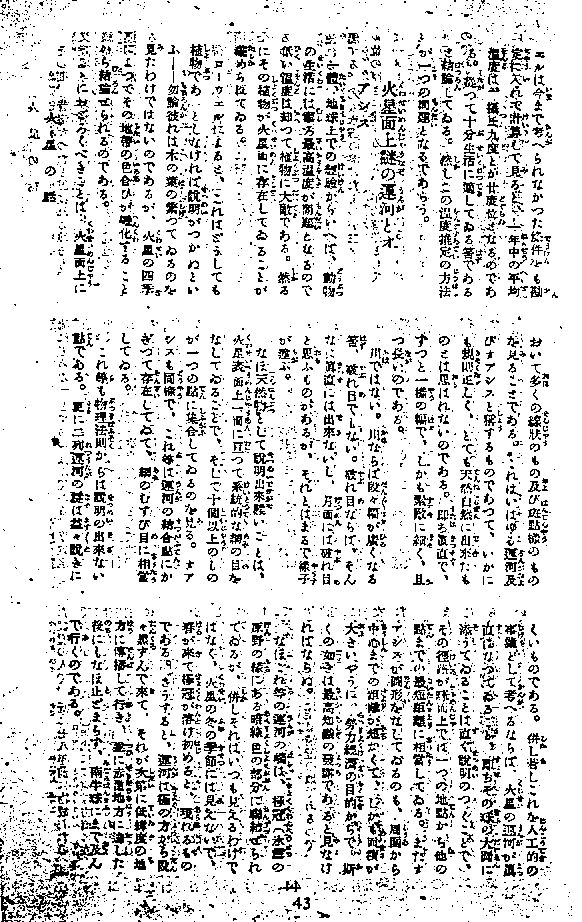 エルは今まで考へられなかつた条件をも勘
定に入れて計算して見ると、一年中の平均
温度は摂氏九度とか廿度位なるのであ
る。従つて十分生活に適してゐる筈である
と結論してゐる。然しこの温度推定の方法
が一つの問題となるであらう。
火星面上謎の運河とオ
アシス
一體、地球上での経験からいへば、動物
の生活には寧ろ最高温度が問題となるので
低い温度は却つて植物に大敵である。然る
にその植物が火星面に存在してゐることが
確められてゐる。
ローウェルによると、これはどうしても
植物であるとしなければ説明がつかぬとい
ふ――勿論彼れは木の葉の繁つてゐるのを
見たわけではないのであるが、火星の四季
によつてその地帯の色合ひが変化すること
から結論せられるのである。
おどろくべきことは、火星面上に
おいて多くの線状のもの及び斑點様のもの
を見ることである。これはいはゆる運河及
びオアシスと称するものであつて、いかに
も規則正しく、とても天然自然に出来たも
のとは思はれないのである。即ち眞直で、
ずつと一様の幅で、しかも數段に続く、且
つ長いのである。
川ではない。川ならば段々幅が廣くなる
筈、破れ目でもない。破れ目ならば、そん
なに眞直には出来ないし、月面には破れ目
と思ふものがあるが、それとはまるで様子
が違ふ。
なほ天然物として説明出来難いことは、
火星表面上一面に亘つて系統的な網の目を
なしてゐることで、そして十個以上のもの
が一つの點に集合してゐるのを見る。オア
シスも同様で、これ等は運河の結合點にか
ぎつて存在してゐて、網のむすび目に相當
してゐる。
これ等も物理法則からは説明の出来ない
點である。更に二列運河の謎は益々説きに
くいものである。併し若しこれを人工的の
準備として考へるならば、火星の運河が眞
直になつてゐること、即ちその球の大圓に
添うてゐることは直ぐ説明のつくことで、
その径路が球面上では一つの地點から他の
點までの最短距離に相當してゐる。またオ
アシスが圓形をなしてゐるのも、周囲から
中心までの距離が短かくて、しかも面積が
大きいやうに、労力経済の目的からで、斯
くの如きは最高知能の發跡であると見なけ
ればならぬ。
なほこれ等の運河の端は、極冠（氷雪の
原野の様にある暗緑色の部分に聯結せられ
てゐるが、併しそれはいつも見えるわけで
はなく、火星の冬の季節には見えないで、
春が来て極冠が溶け初めると、現れるもの
である。さうすると、運河は極の方から段
々黒ずんで来て、それが次第に低緯度の地
方に傳播して行き、遂に赤道地方に達した
後にもなほ止どまらず、南半球にまで及ん
で行くのである。
43